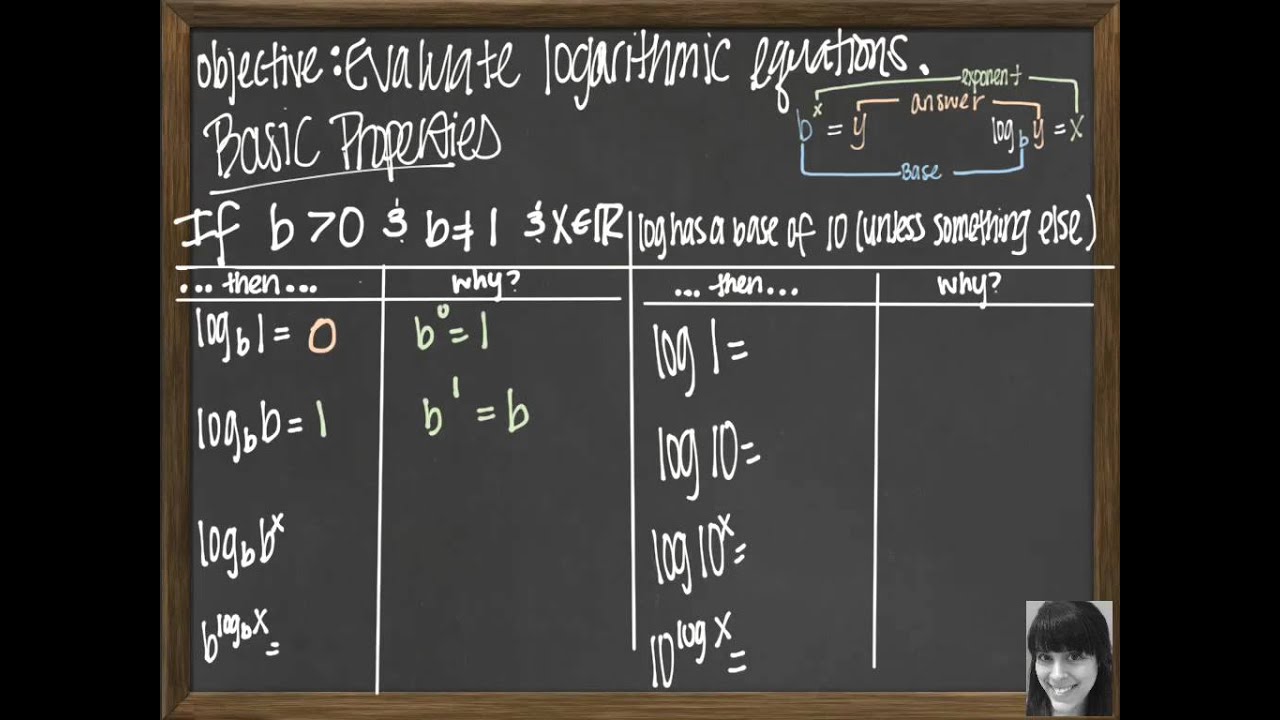 objective: Evaluate logarithmic equations.
Basic Properties
exponent
answer
bˣ = y
log_b y = x
Base
If b > 0 & b ≠ 1 & x ∈ ℝ
log has a base of 10 (unless something else)
... then ...
why?
... then ...
why?
log_b 1 = 0
b⁰ = 1
log 1 =
log_b b = 1
b¹ = b
log 10 =
log_b bˣ
log 10ˣ =
b^(log_b x) =
10^(log x) =